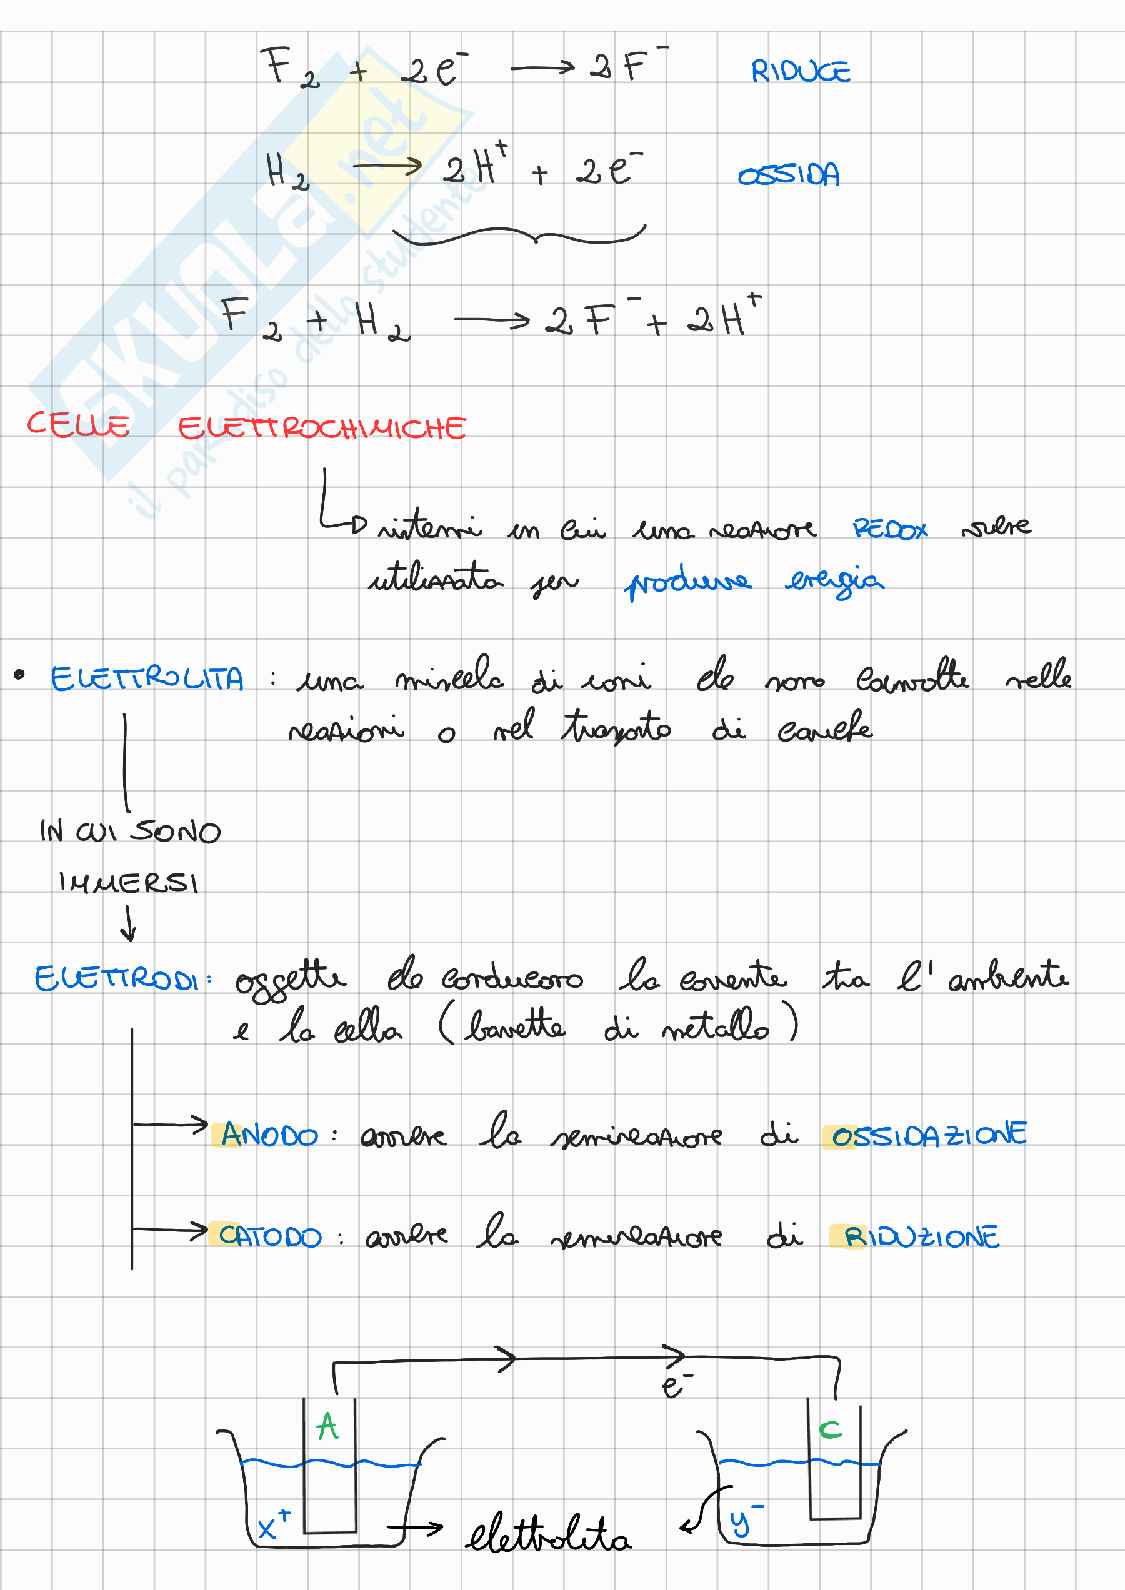 F₂ + 2e⁻ → 2F⁻ RIDUCE
H₂ → 2H⁺ + 2e⁻ OSSIDA
F₂ + H₂ → 2F⁻ + 2H⁺
CELLE ELETTROCHIMICHE
sistemi in cui una reazione REDOX viene
utilizzata per produrre energia
• ELETTROLITA : una miscela di ioni che sono coinvolte nelle
reazioni o nel trasporto di cariche
IN CUI SONO
IMMERSI
ELETTRODI : oggetti che conducono la corrente tra l'ambiente
e la cella (barrette di metallo)
ANODO : avviene la semireazione di OSSIDAZIONE
CATODO : avviene la semireazione di RIDUZIONE
e⁻
A C
x⁺ → elettrolita y⁻
SKUOLA.net
il paradiso dello studente